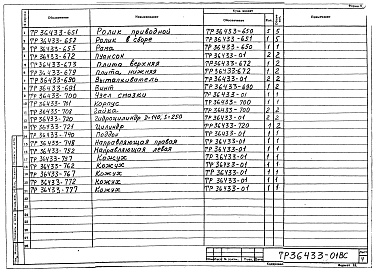 Обозначение Наименование Примечание
ТР36433-651 Ролик приводной ТР36433-650 5 5
ТР36433-652 Ролик в сборе ТР36433-651 1 5
ТР36433-655 Рама ТР36433-650 1 1
ТР36433-672 Пуансон ТР36433-01 2 2
ТР36433-673 Плита верхняя ТР36433-672 1 2
ТР36433-679 Плита нижняя ТР36433-672 1 2
ТР36433-690 Выталкиватель ТР36433-01 2 2
ТР36433-691 Винт ТР36433-690 1 2
ТР36433-700 Узел смазки ТР36433-01 1 1
ТР36433-701 Корпус ТР36433-700 1 1
ТР36433-702 Бойка ТР36433-700 2 2
ТР36433-720 Гидроцилиндр D-140, S-250 ТР36433-01 2 2
ТР36433-721 Цилиндр ТР36433-720 1 2
ТР36433-740 Поддон ТР36433-01 1 1
ТР36433-748 Направляющая правая ТР36433-01 1 1
ТР36433-752 Направляющая левая ТР36433-01 1 1
ТР36433-757 Кожух ТР36433-01 1 1
ТР36433-762 Кожух ТР36433-01 1 1
ТР36433-767 Кожух ТР36433-01 1 1
ТР36433-772 Кожух ТР36433-01 1 1
ТР36433-777 Кожух ТР36433-01 1 1
ТР36433-01ВС